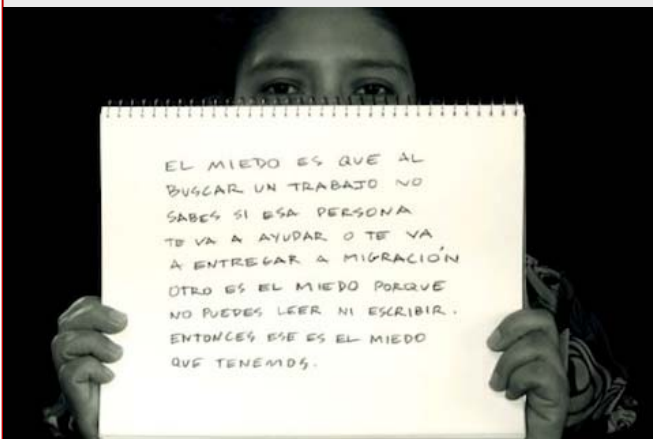 EL MIEDO ES QUE AL
BUSCAR UN TRABAJO NO
SABES SI ESA PERSONA
TE VA A AYUDAR O TE VA
A ENTREGAR A MIGRACIÓN
OTRO ES EL MIEDO PORQUE
NO PUEDES LEER NI ESCRIBIR.
ENTONCES ESE ES EL MIEDO
QUE TENEMOS.